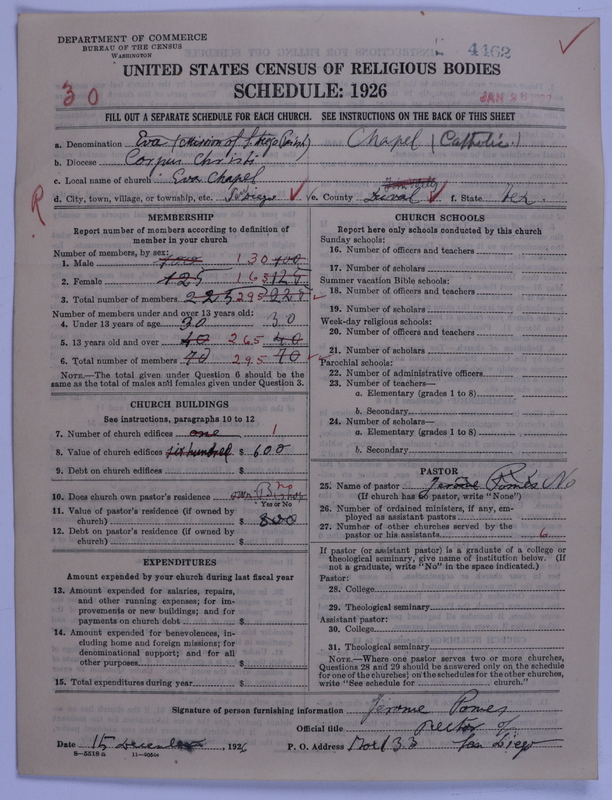 DEPARTMENT OF COMMERCE
BUREAU OF THE CENSUS
WASHINGTON
4462
UNITED STATES CENSUS OF RELIGIOUS BODIES
SCHEDULE: 1926
30
FILL OUT A SEPARATE SCHEDULE FOR EACH CHURCH. SEE INSTRUCTIONS ON THE BACK OF THIS SHEET
a. Denomination Eva (Mission of Chapel (Catholic)
b. Diocese Corpus Christi
c. Local name of church Eva Chapel
d. City, town, village, or township, etc. San Diego e. County Duval f. State Tex.
R
MEMBERSHIP
Report number of members according to definition of member in your church
Number of members, by sex:
1. Male 100 130 100
2. Female 125 165 125
3. Total number of members 225 295 225
Number of members under and over 13 years old:
4. Under 13 years of age 30 30
5. 13 years old and over 40 265 40
6. Total number of members 70 295 70
NOTE.—The total given under Question 6 should be same as the total of males and females given under Question 3.
CHURCH BUILDINGS
See instructions, paragraphs 10 to 12
7. Number of church edifices one 1
8. Value of church edifices six hundred $ 600
9. Debt on church edifices $
10. Does church own pastor's residence no
Yes or No
11. Value of pastor's residence (if owned by church) $
12. Debt on pastor's residence (if owned by church) $
EXPENDITURES
Amount expended by your church during last fiscal year
13. Amount expended for salaries, repairs, and other running expenses; for improvements or new buildings; and for payments on church debt $
14. Amount expended for benevolences, including home and foreign missions; for denominational support; and for all other purposes $
15. Total expenditures during year $
CHURCH SCHOOLS
Report here only schools conducted by this church
Sunday schools:
16. Number of officers and teachers
17. Number of scholars
Summer vacation Bible schools:
18. Number of officers and teachers
19. Number of scholars
Week-day religious schools:
20. Number of officers and teachers
21. Number of scholars
Parochial schools:
22. Number of administrative officers
23. Number of teachers—
a. Elementary (grades 1 to 8)
b. Secondary
24. Number of scholars—
a. Elementary (grades 1 to 8)
b. Secondary
PASTOR
25. Name of pastor Jerome Pomes No
(If church has no pastor, write "None")
26. Number of ordained ministers, if any, employed as assistant pastors
27. Number of other churches served by the pastor or his assistants 6
If pastor (or assistant pastor) is a graduate of a college or theological seminary, give name of institution below. (If not a graduate, write "No" in the space indicated.)
Pastor:
28. College
29. Theological seminary
Assistant pastor:
30. College
31. Theological seminary
NOTE.—Where one pastor serves two or more churches, Questions 28 and 29 should be answered only on the schedule for one of the churches; on the schedules for the other churches, write "See schedule for church."
Signature of person furnishing information Jerome Pomes
Official title rector of
Date 15 December, 1926 P. O. Address Box 133 San Diego
8—5518 a